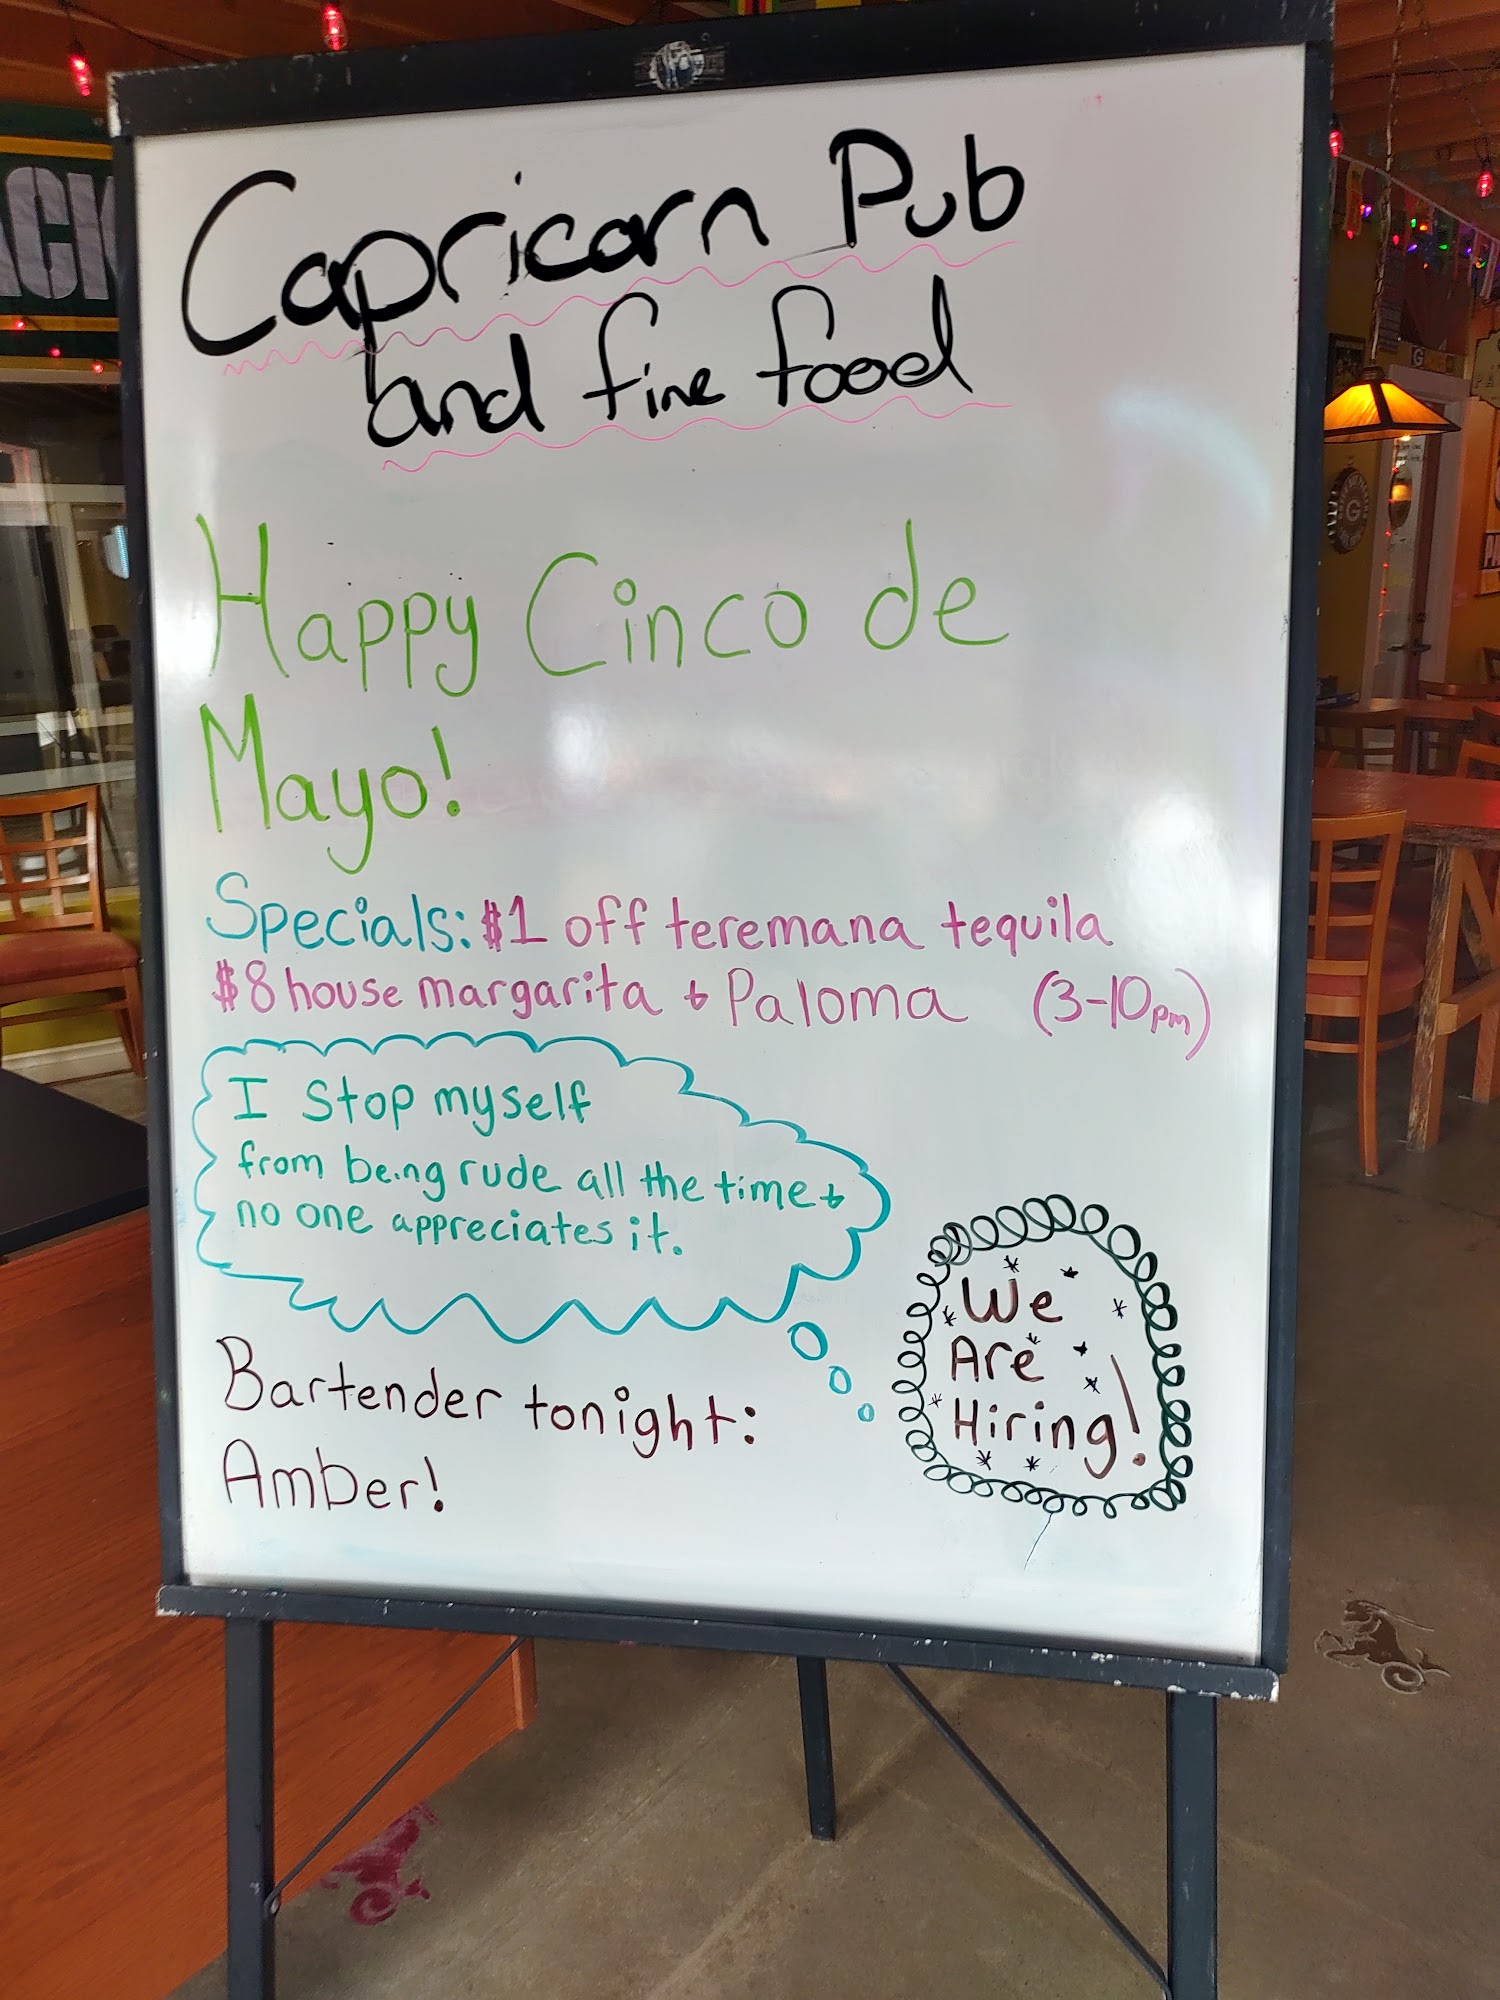 Capricorn Pub
and fine food
Happy Cinco de
Mayo!
Specials: $1 off teremana tequila
$8 house margarita & Paloma (3-10pm)
I stop myself
from being rude all the time &
no one appreciates it.
We
Are
Hiring!
Bartender tonight:
Amber!
ACK
G
G